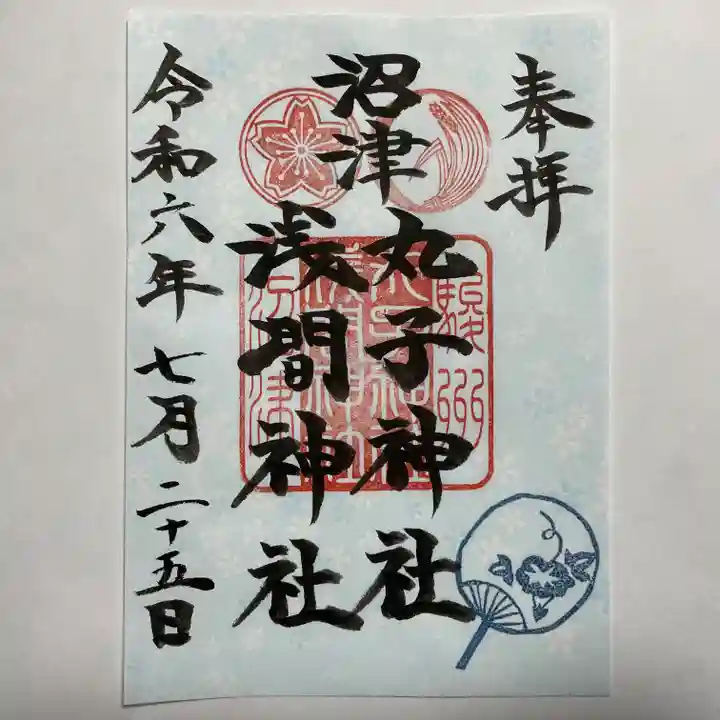 奉拝
沼津
丸子神社
浅間神社
令和六年七月二十五日
駿州